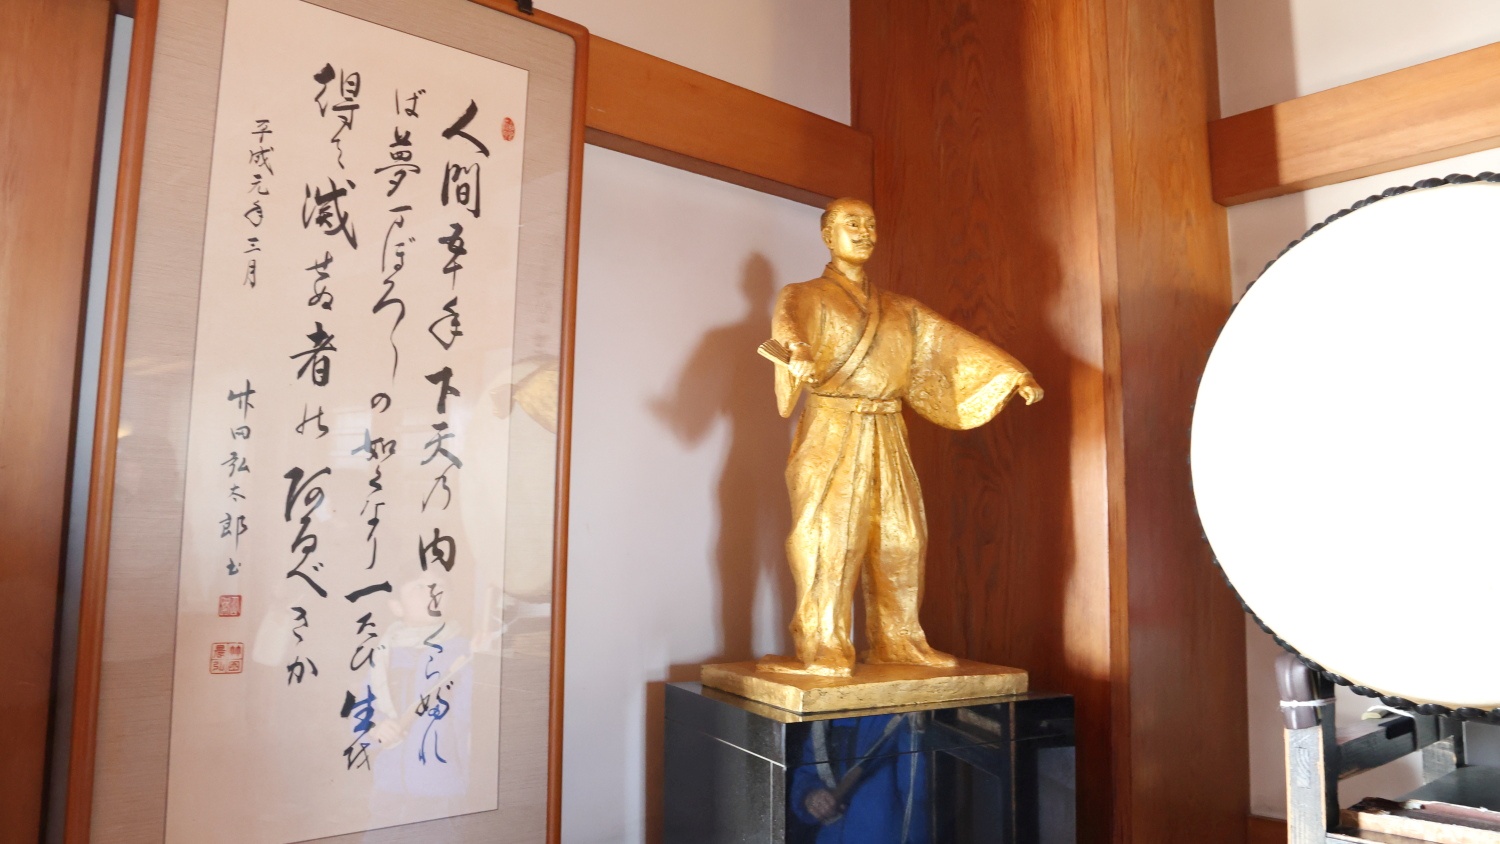 人間五十年下天乃内をくらぶれ
ば夢まぼろしの如くなり一たび生を
得て滅せぬ者のあるべきか
平成元年三月
林田弘太郎書